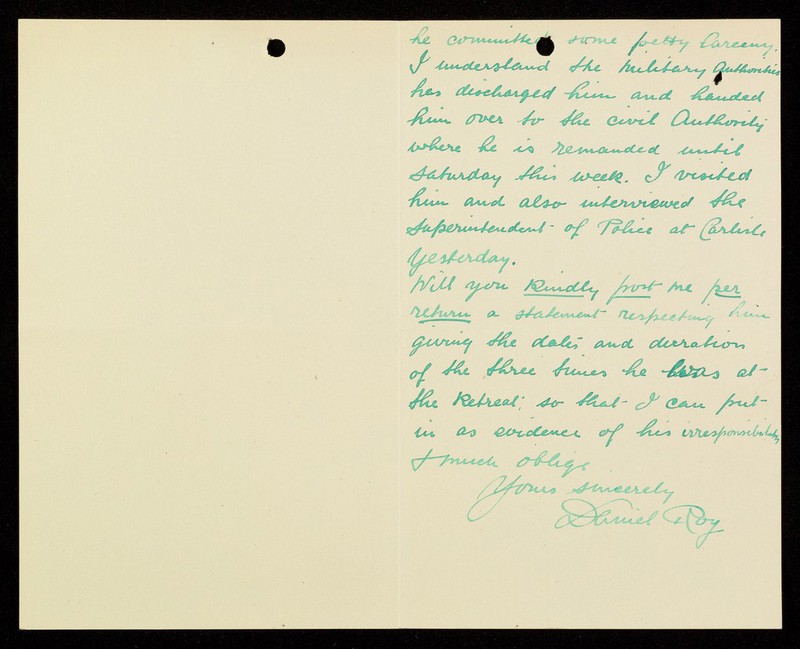 he committed some petty Larceny.
I understand the Military Authorities
has discharged him and handed
him over to the civil Authority
where he is remanded until
Saturday this week. I visited
him and also interviewed the
Superintendent of Police at Carlisle
Yesterday.
Will you kindly post me per
return a statement respecting him
giving the dates and durration
of the three times he was at
the Retreat, so that I can put
in as evidence of his irresponsibility
& much oblige
Yours sincerely
Daniel Roy